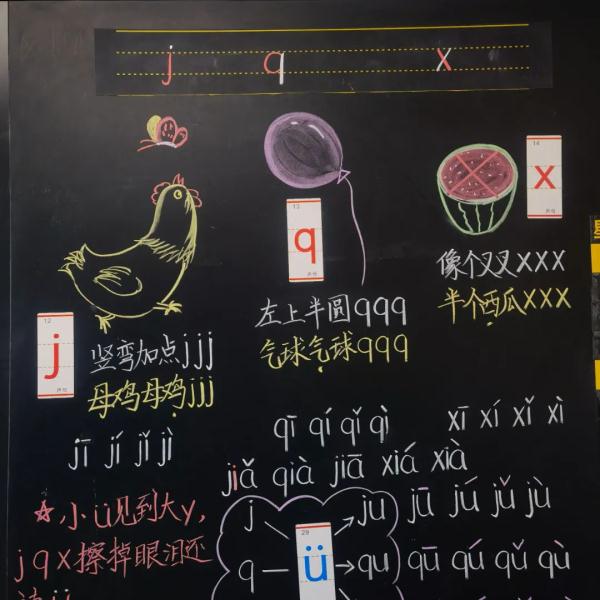 j q x
12
j
声母
13
q
声母
14
x
声母
竖弯加点jjj
母鸡母鸡jjj
左上半圆qqq
气球气球qqq
像个叉叉xxx
半个西瓜xxx
jī jí jǐ jì
qī qí qǐ qì
xī xí xǐ xì
jiǎ qià jiā xiá xià
☆小ü见到大y,
j q x擦掉眼泪还
j — ju jū jú jǔ jù
q — → qu qū qú qǔ qù
29
ü